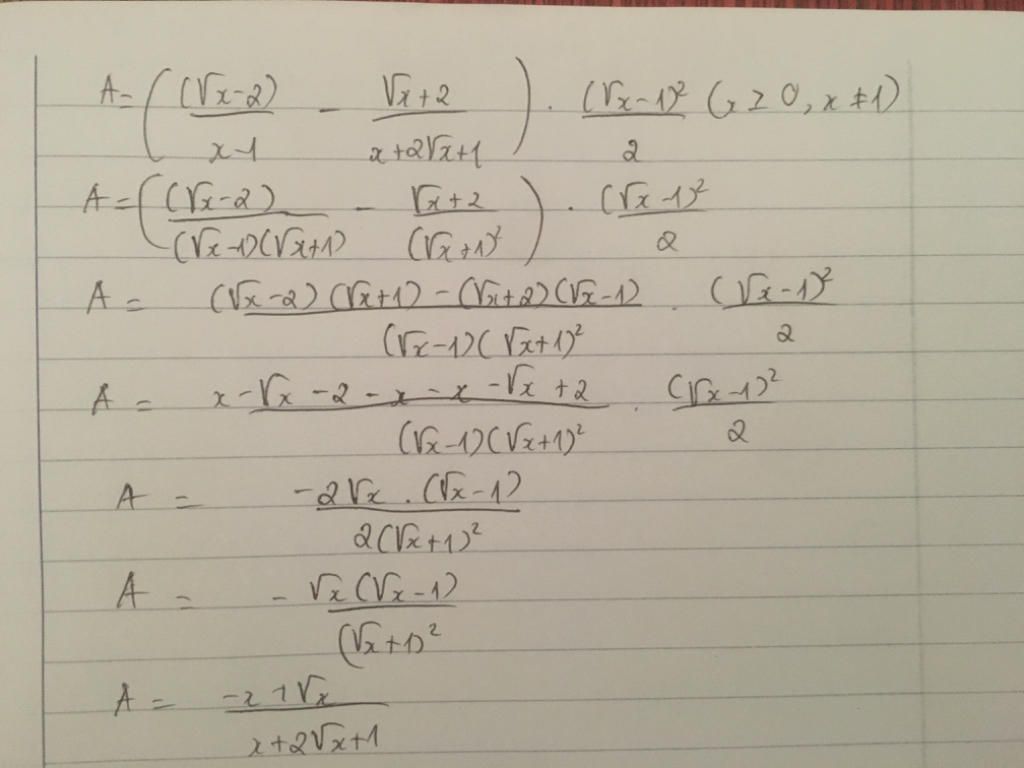 A = ( (√x-2) / x-1 - √x+2 / x+2√x+1 ) . (√x-1)² / 2 (x ≥ 0, x ≠ 1)
A = ( (√x-2) / (√x-1)(√x+1) - √x+2 / (√x+1)² ) . (√x-1)² / 2
A = (√x-2)(√x+1) - (√x+2)(√x-1) / (√x-1)(√x+1)² . (√x-1)² / 2
A = x - √x - 2 - x - x - √x + 2 / (√x-1)(√x+1)² . (√x-1)² / 2
A = -2√x . (√x-1) / 2(√x+1)²
A = - √x(√x-1) / (√x+1)²
A = -x+√x / x+2√x+1